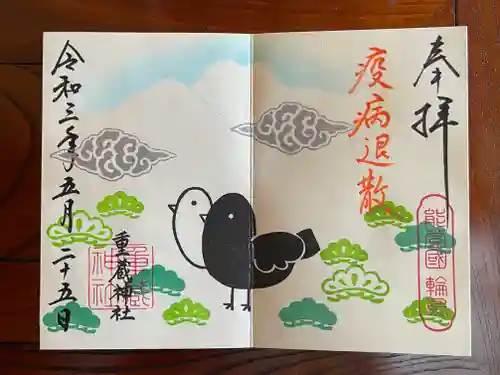 奉拝
疫病退散
能登國輪島
重蔵神社
重蔵神社
令和三年五月二十五日